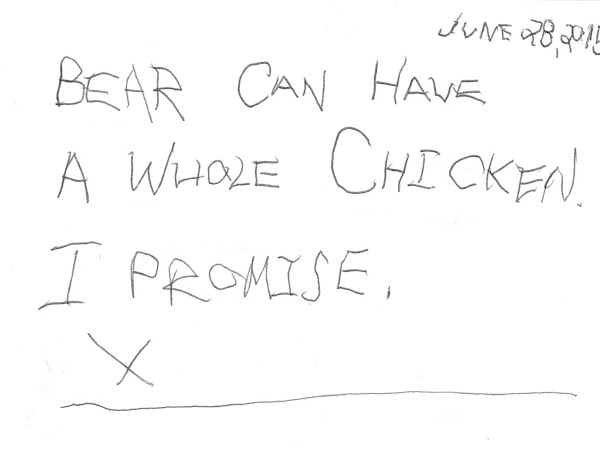 JUNE 28, 2015
BEAR CAN HAVE
A WHOLE CHICKEN.
I PROMISE.
X